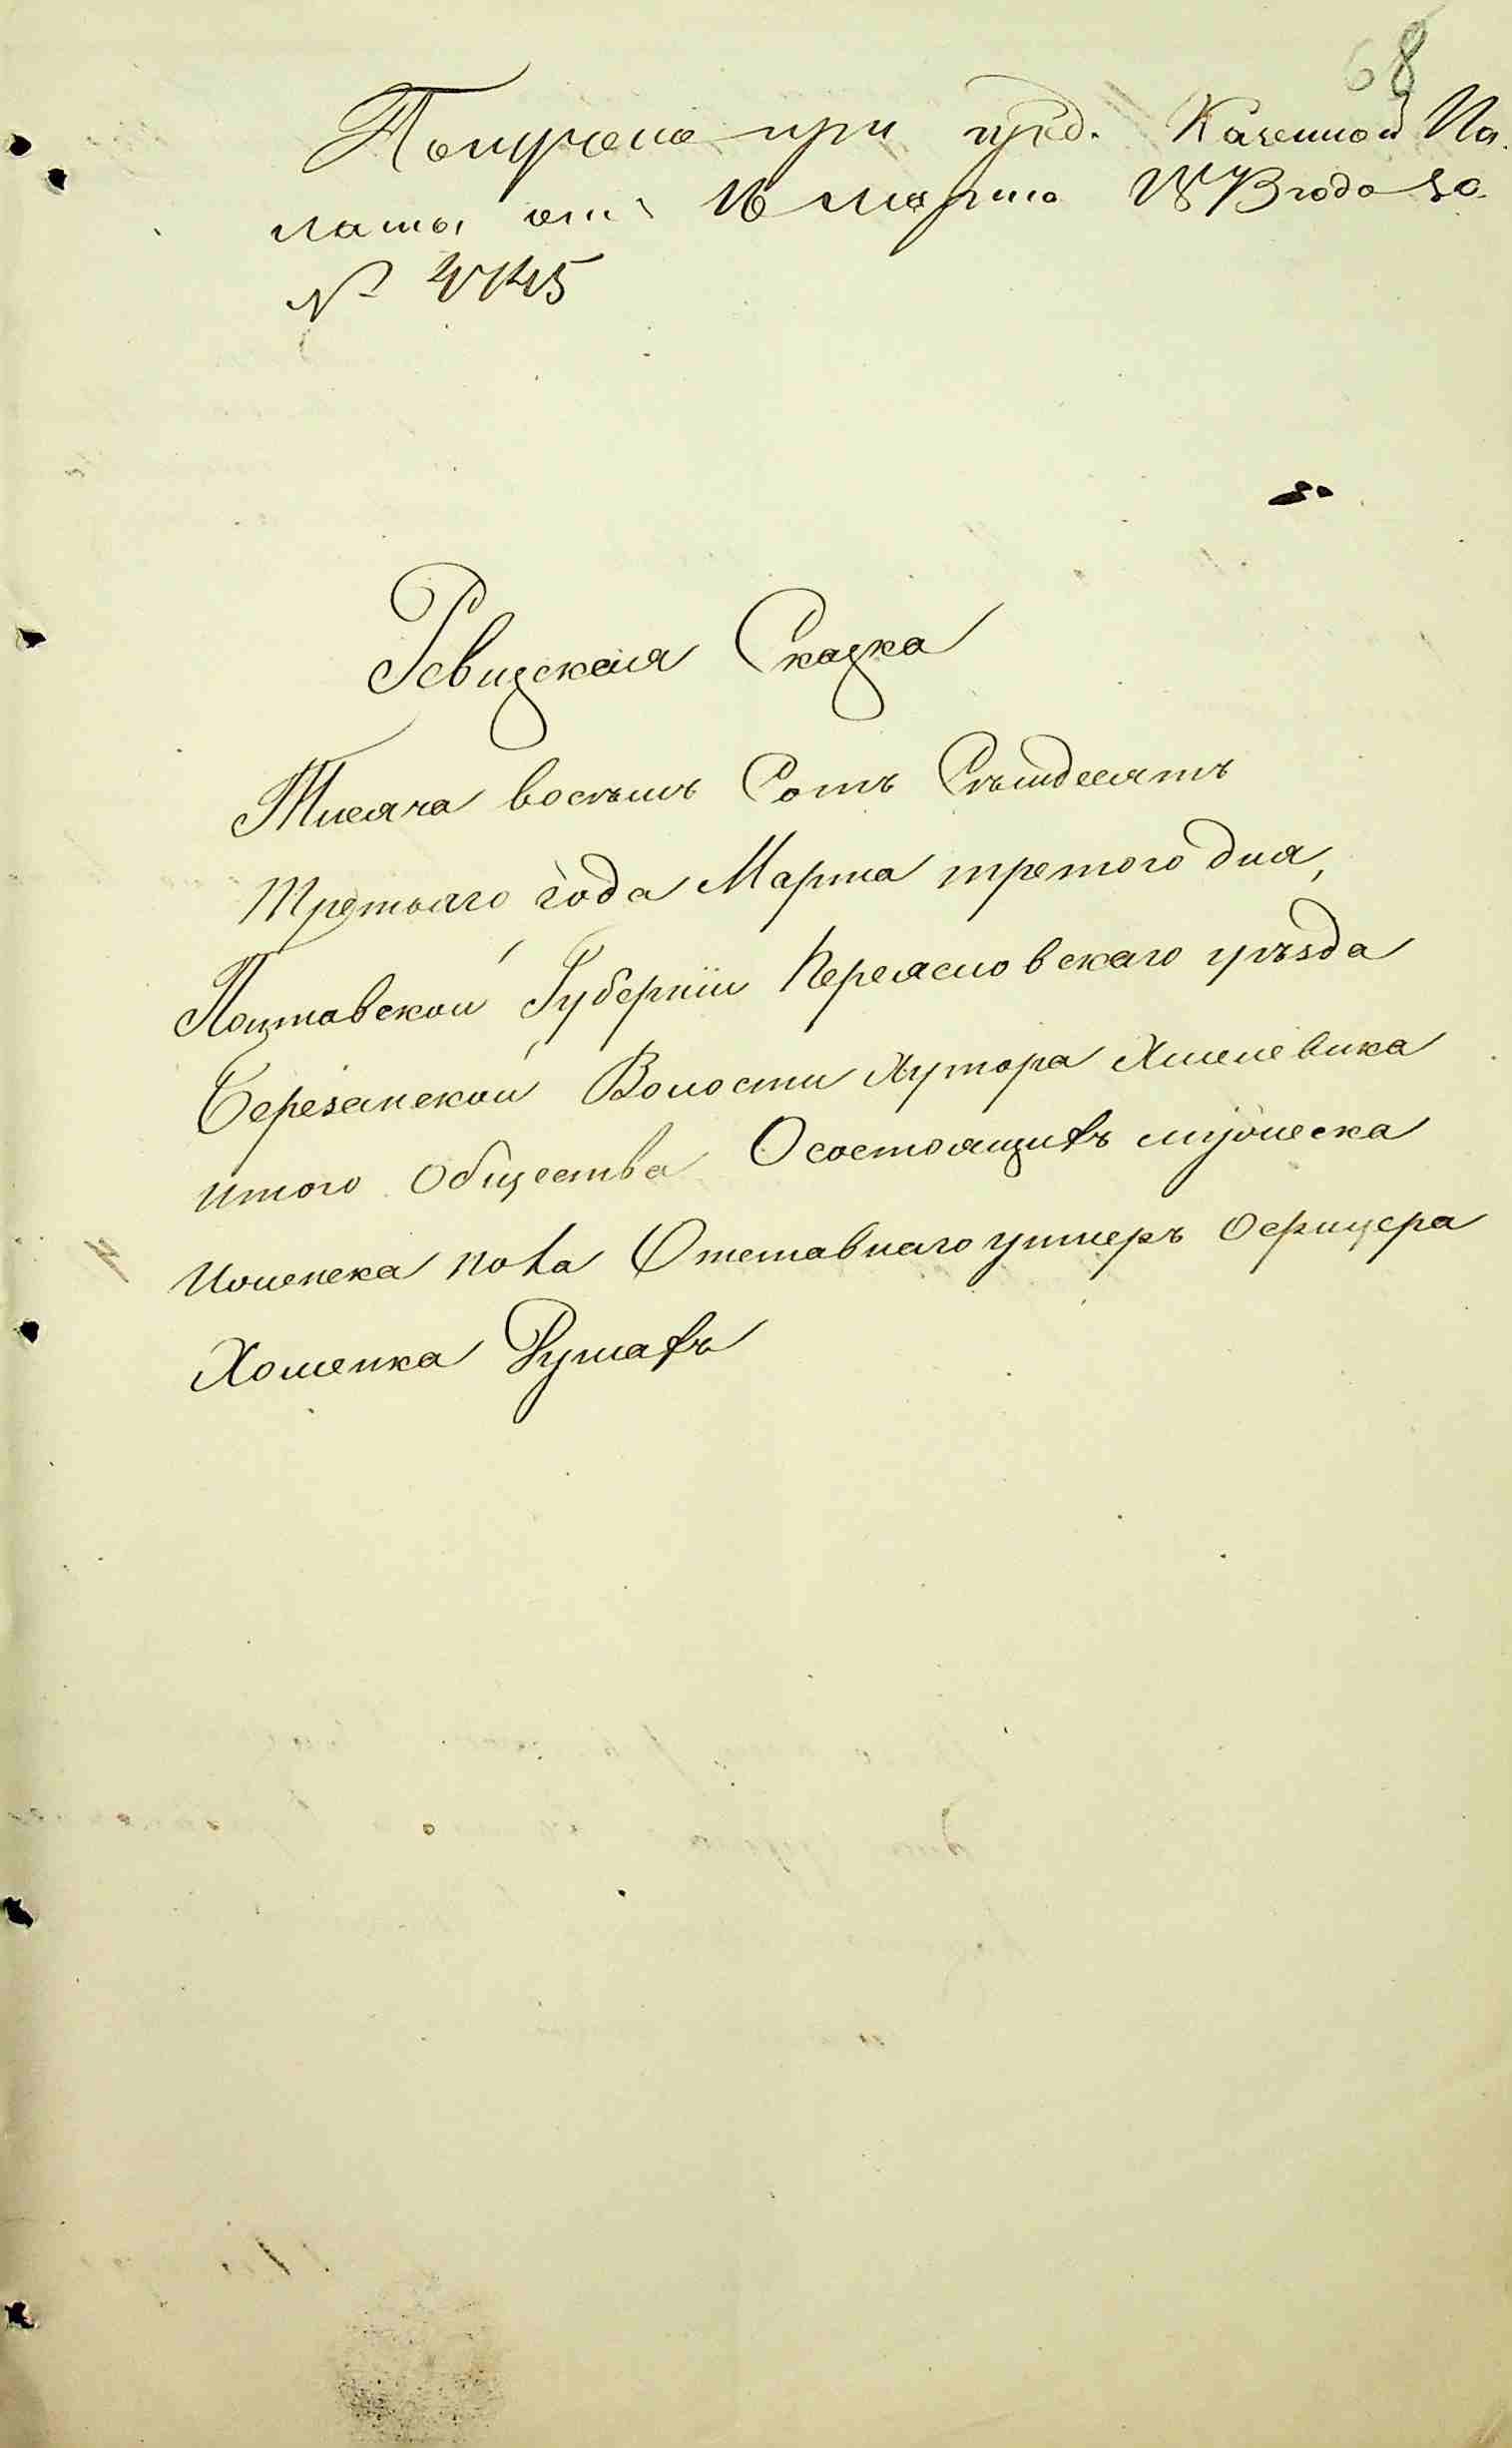 68
Получена при пред. Казенной Па.
латы отъ 16 марта 1873 года за
№ 4745
Ревизская Сказка
Тисяча восемъ Сотъ Сѣмдесятъ
Третьяго года Марта третого дня,
Полтавской Губерніи Переясловскаго уѣзда
Березанской Волости Хутора Хмелевика
итого Общества О состоящихъ мужеска
и женска пола Отставнаго унтеръ Офицера
Хоменка Душахъ